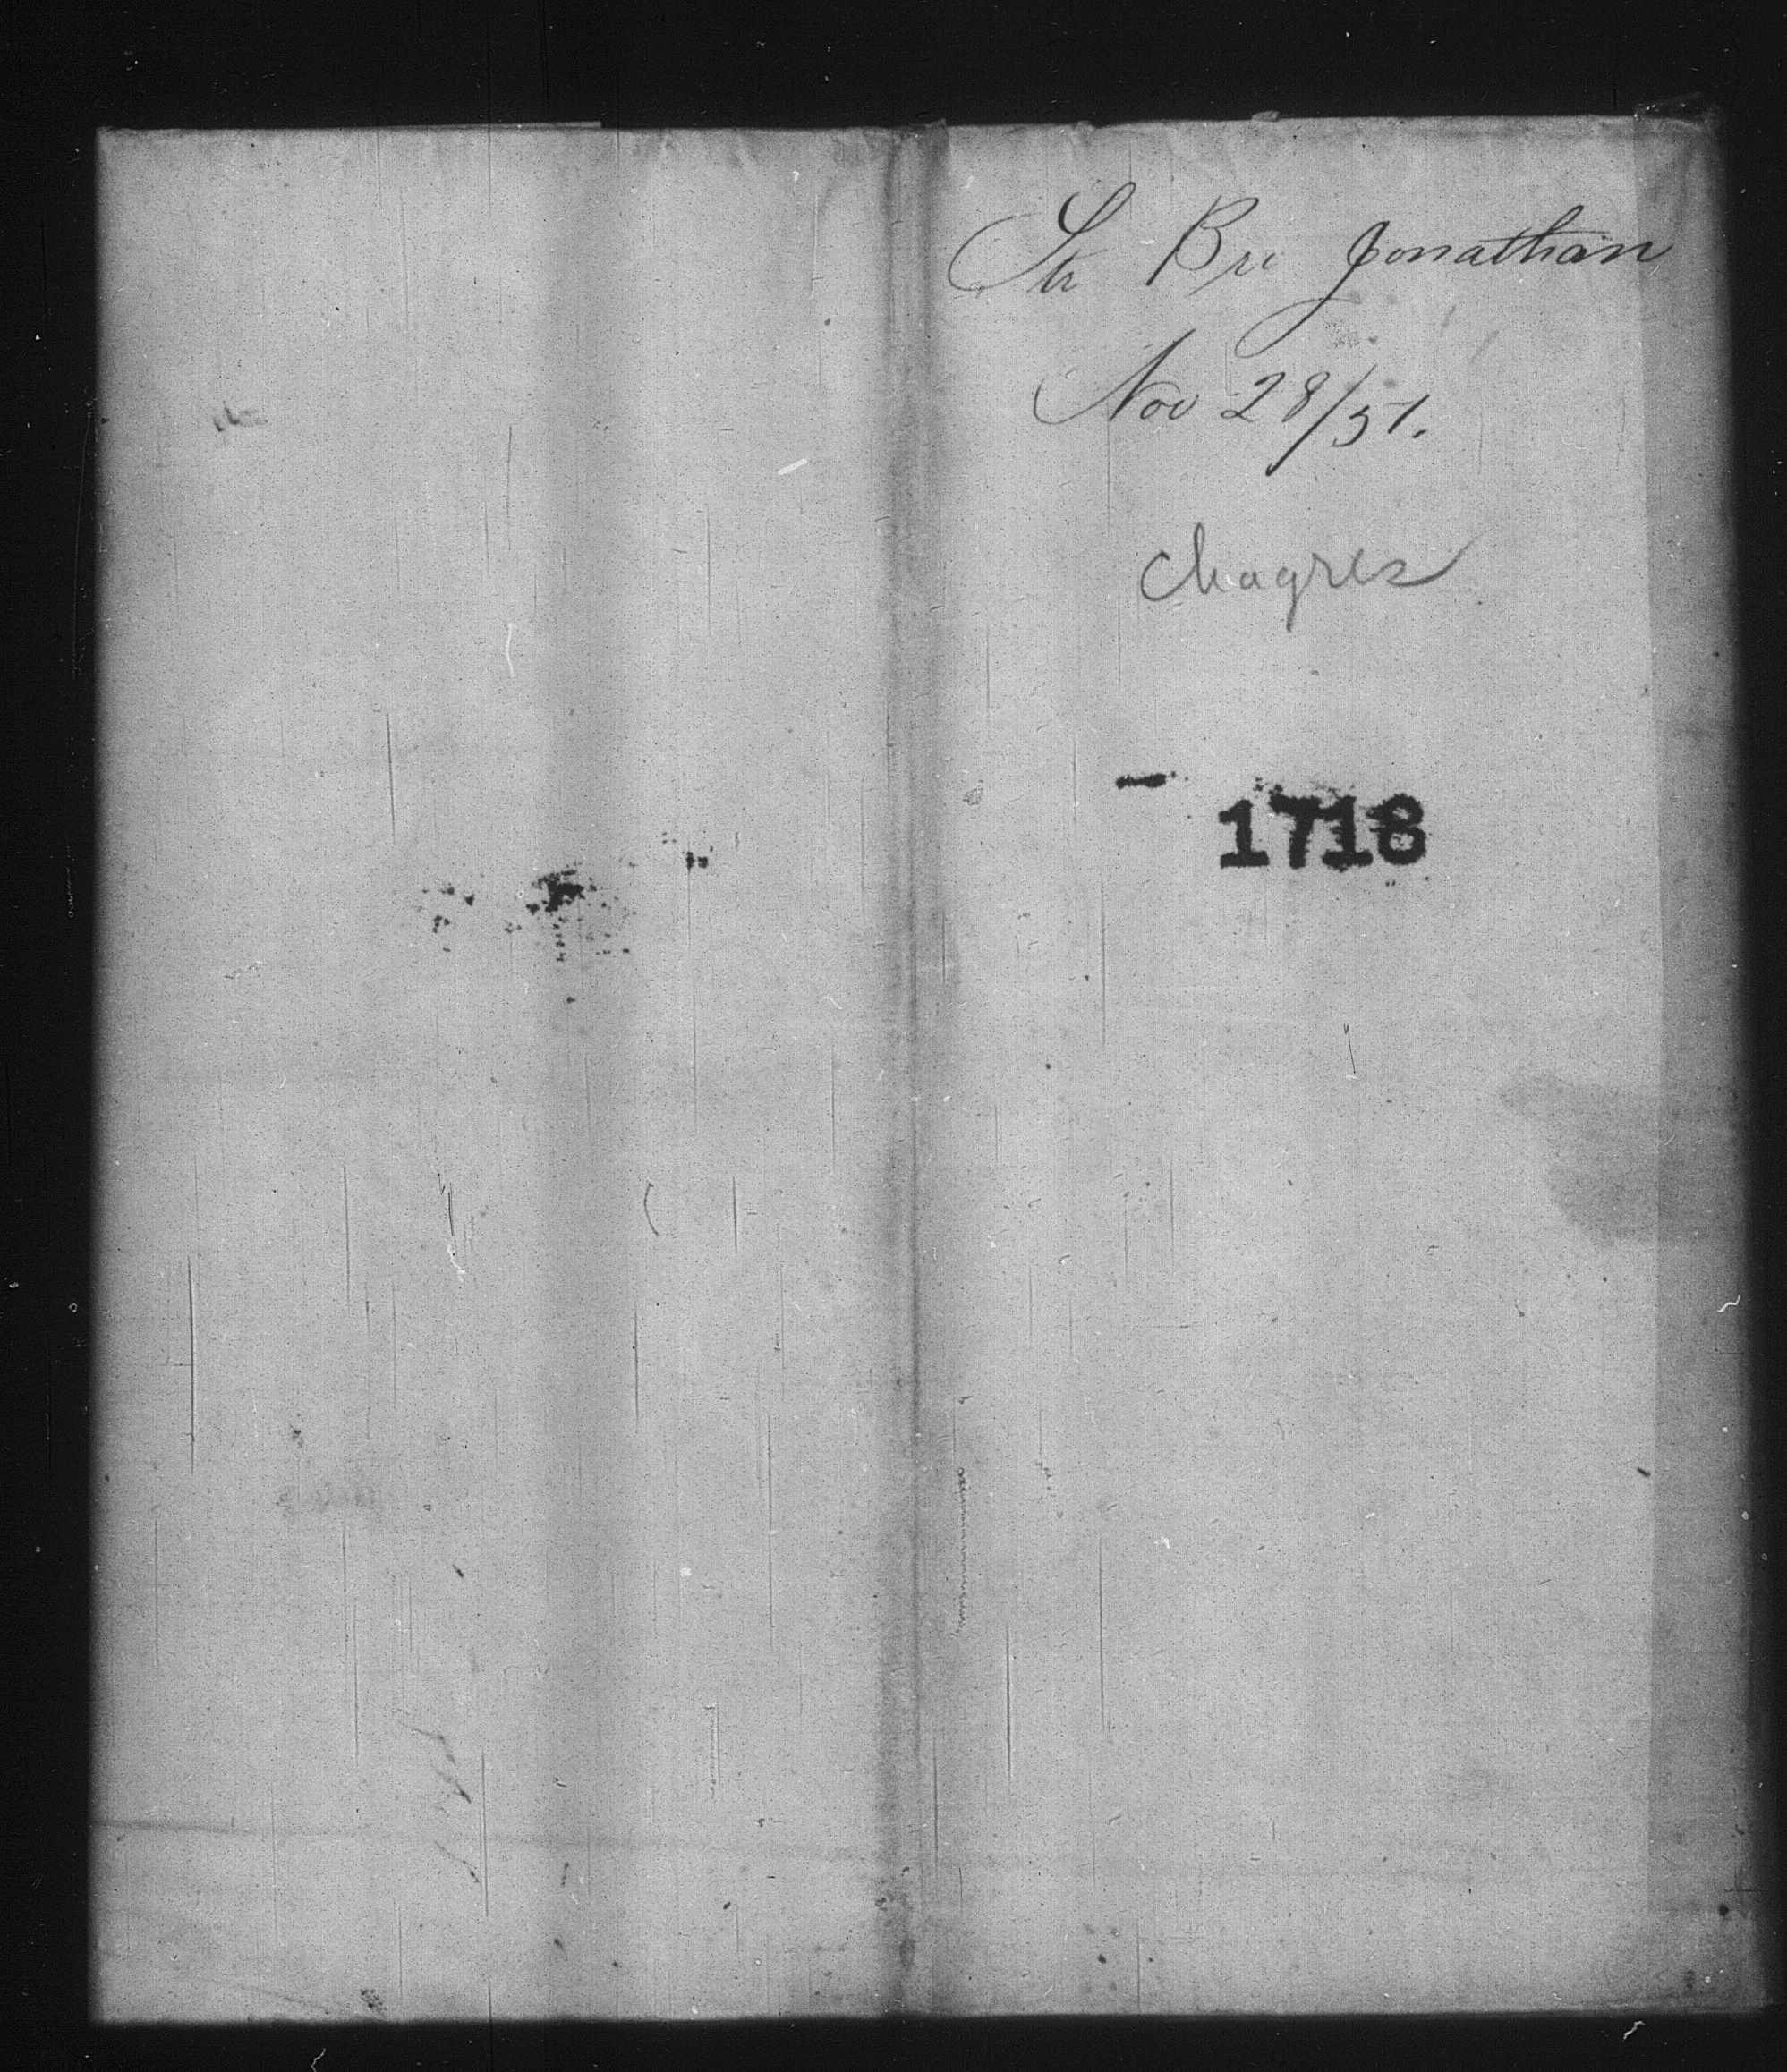 Str Bro Jonathan
Nov 28/51.
Chagres
1718